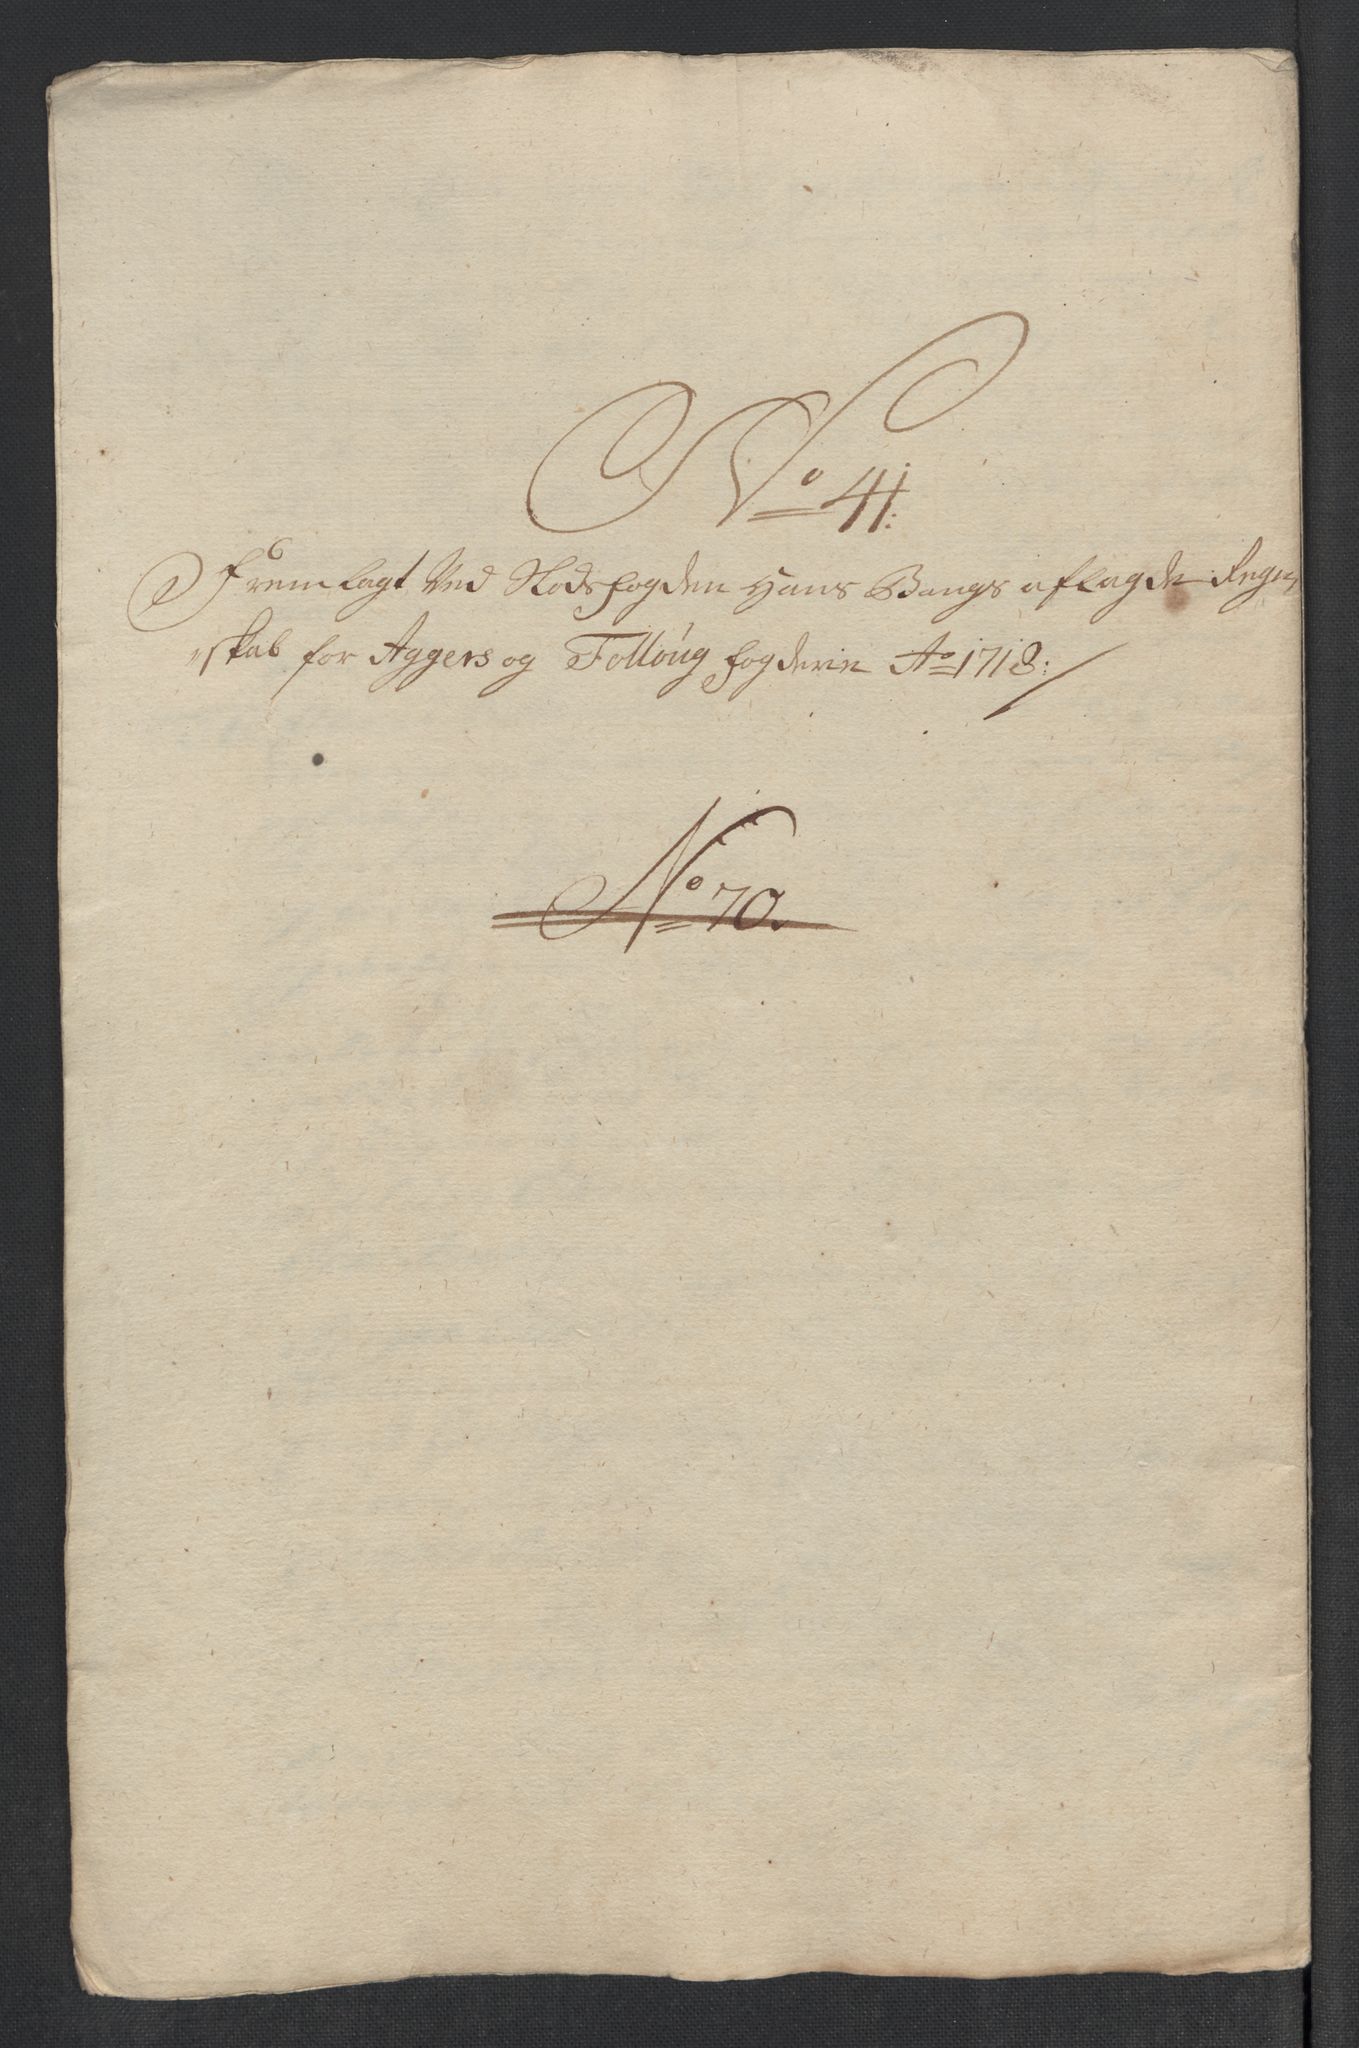 No 41:
Fremlagt Ved Slodsfogden Hans Bangs aflagde Regen,
"skab for Aggers og Follóug fogderie Ao 1718:
No 70.